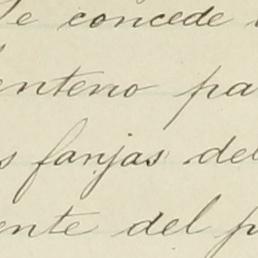 Se concede
enterio pa
s fanjas del
ente del p